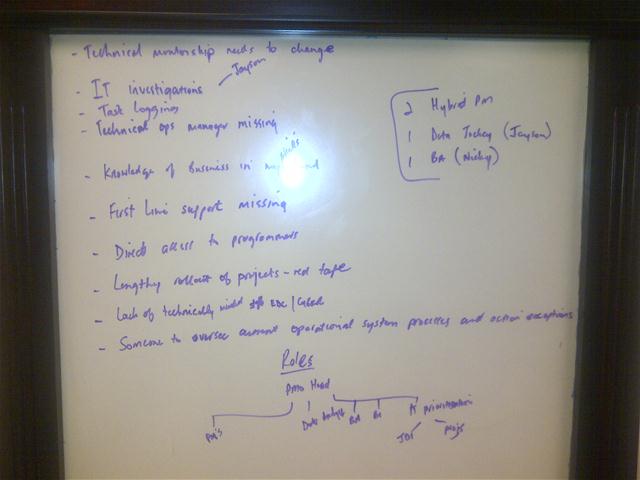 - Technical mentorship needs to change
- IT investigations - Jayson
- Task Logging
- Technical ops manager missing
- Knowledge of Business in
- First Line support missing
- Direct access to programmers
- Lengthy rollout of projects - red tape
- Lack of technically minded
- Someone to oversee operational system processes and action exceptions
2 Hybrid PM
1 Data Jockey (Jayson)
1 BA (Nicky)
Roles
PMO Head
PM's
Data Analyst
BA
BA
prioritisation
projs